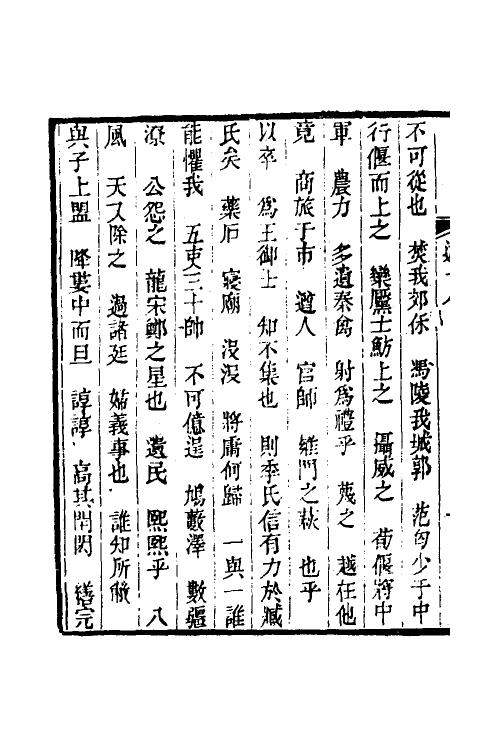 不可從也　焚我郊保　馮陵我城郭　范匄少于中
行偃而上之　欒黶士魴上之　攝威之　荀偃將中
軍　農力　多遺秦禽　射爲禮乎　蔑之　越在他
竟　商旅于市　遒人　官師　雍門之萩　也乎
以卒　爲王御士　知不集也　則季氏信有力於臧
氏矣　藥石　寢廟　沒沒　將庸何歸　一與一誰
能懼我　五吏三十帥　不可億逞　鳩藪澤　數疆
潦　公怨之　龍宋鄭之星也　遺民　熙熙乎　八
風　天又除之　過諸廷　婦義事也　誰知所敝
與子上盟　降婁中而旦　諄諄　高其閈閎　繕完